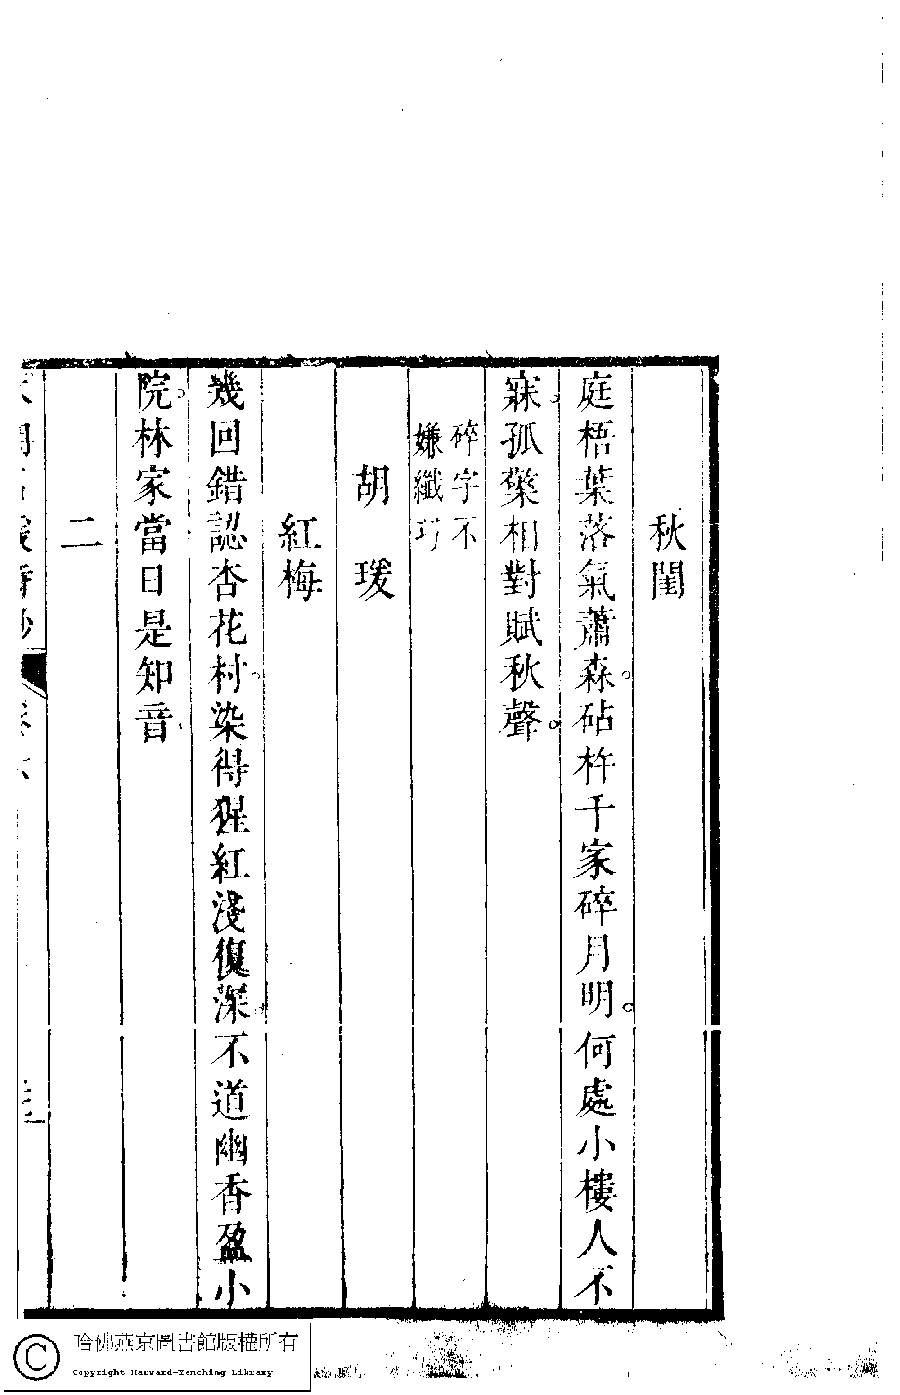 秋閨
庭梧葉落氣蕭森砧杵千家碎月明何處小樓人不
寐孤檠相對賦秋聲
碎字不
嫌纖巧
胡瑗
紅梅
幾回錯認杏花村染得猩紅淺復深不道幽香盈小
院林家當日是知音
二
哈佛燕京圖書館版權所有
Copyright Harvard-Yenching Library